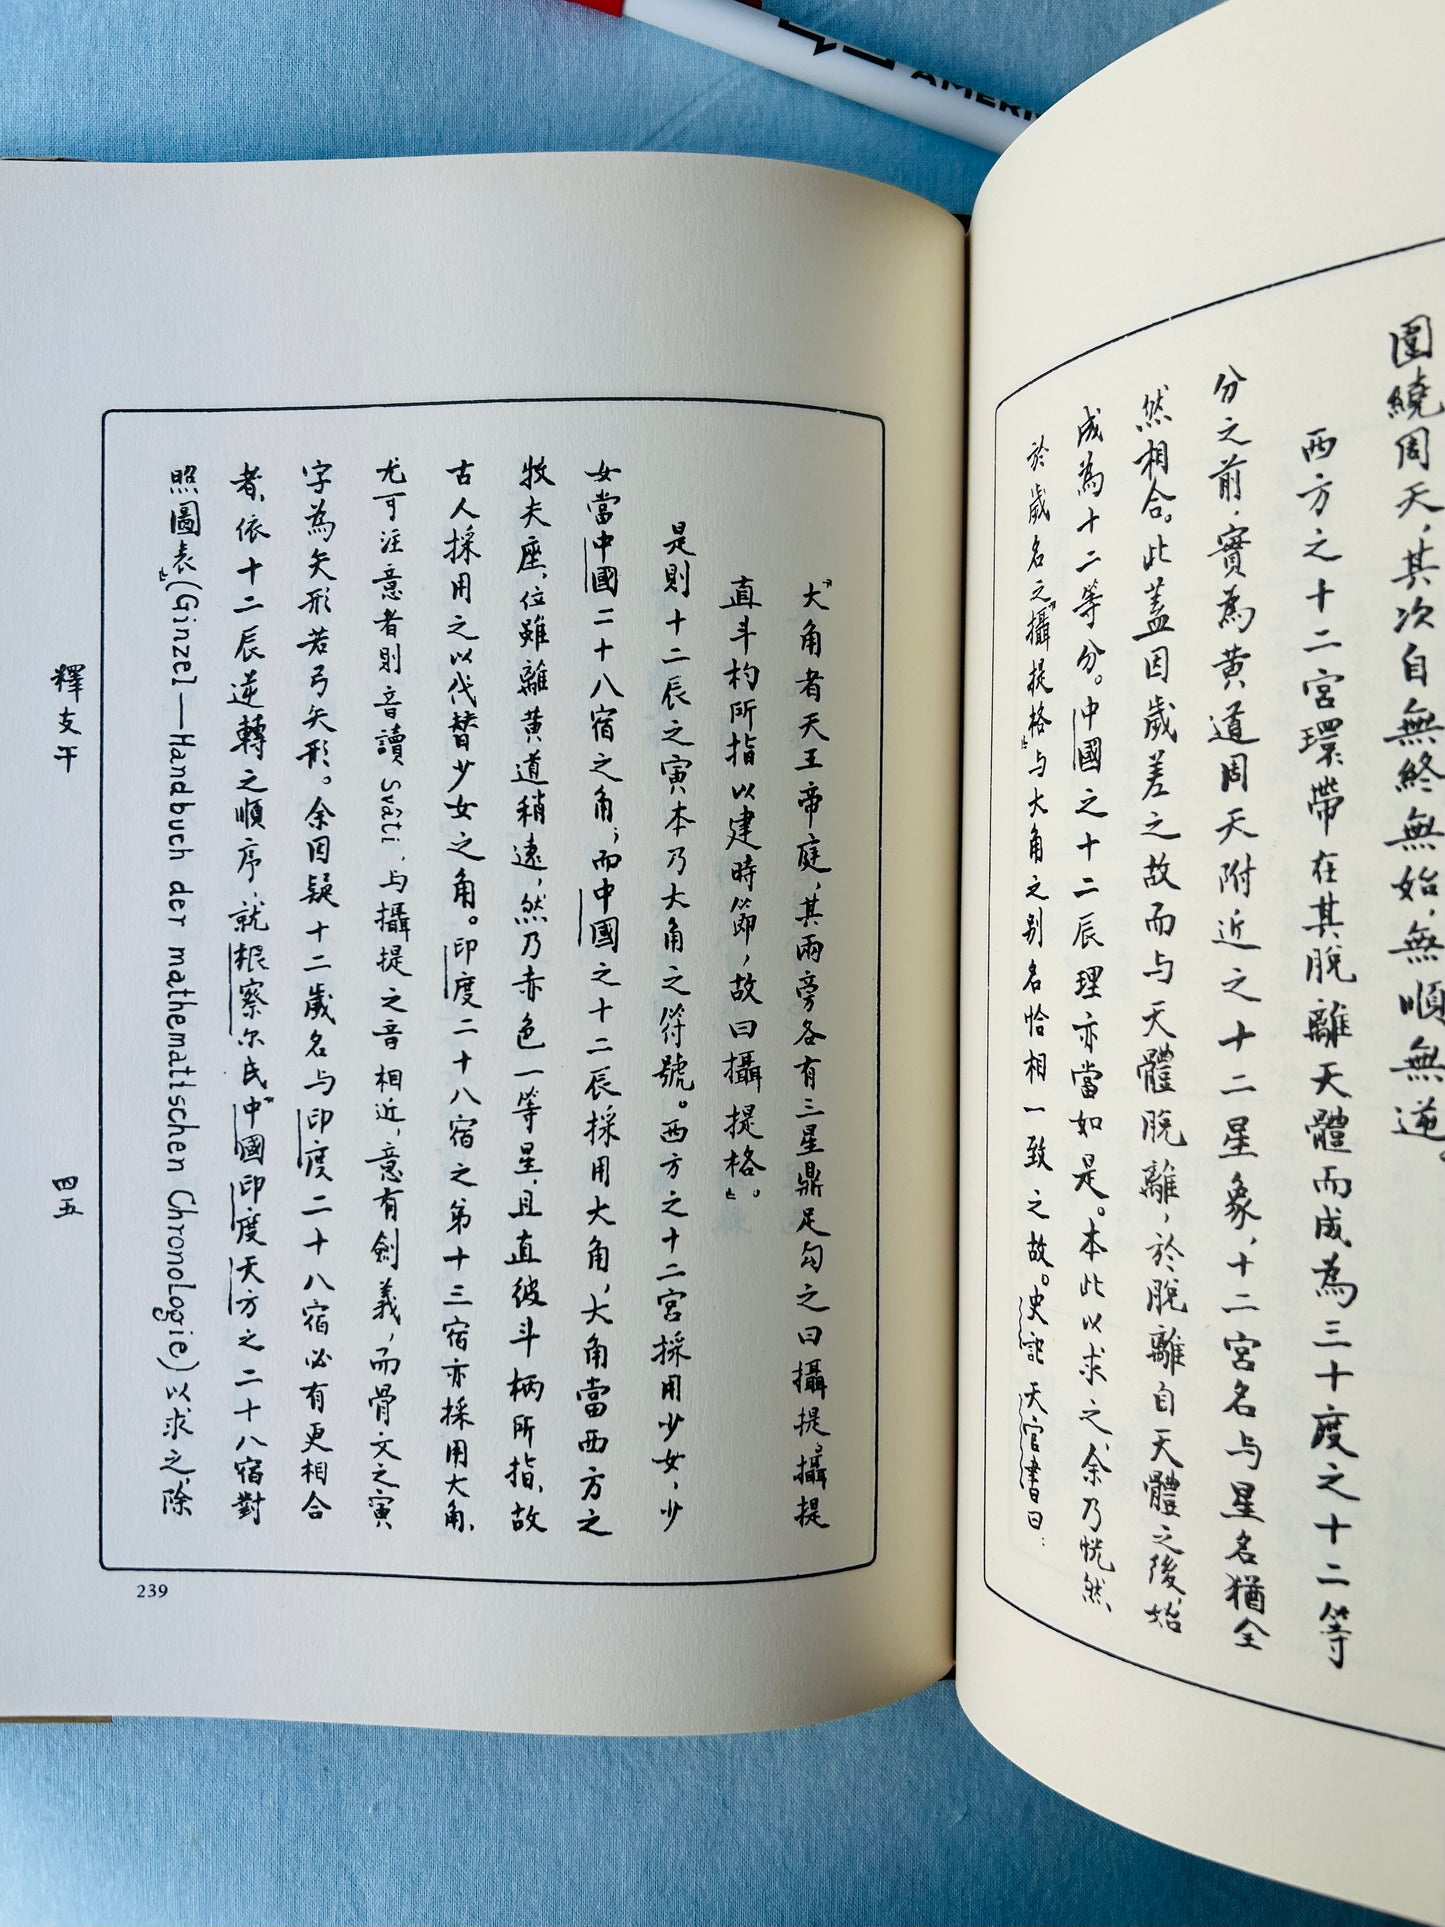 AMERI
圍繞周天，其次自無終無始，無順無逆。
西方之十二宮環帶在其脫離天體而成為三十度之十二等
分之前，實為黃道周天附近之十二星象，十二宮名与星名猶全
然相合。此蓋因歲差之故而与天體脫離，於脫離自天體之後，始
成為十二等分。中國之十二辰理亦當如是。本此以求之，余乃恍然，
於歲名之『攝提格』与大角之別名恰相一致之故。史記天官書曰：
『大角者天王帝庭，其兩旁各有三星鼎足勾之曰攝提，攝提
直斗杓所指以建時節，故曰攝提格』。
是則十二辰之寅本乃大角之符號。西方之十二宮採用少女，少
女當中國二十八宿之角，而中國之十二辰採用大角，大角當西方之
牧夫座，位雖離黃道稍遠，然乃赤色一等星，且直彼斗柄所指，故
古人採用之以代替少女之角。印度二十八宿之第十三宿亦採用大角，
尤可注意者則音讀 Svāti，与攝提之音相近，意有劍義，而骨文之寅
字為矢形若弓矢形。余因疑十二歲名与印度二十八宿必有更相合
者，依十二辰逆轉之順序，就根察尔氏『中國印度天方之二十八宿對
照圖表』(Ginzel—Handbuch der mathemattschen Chronologie) 以求之，除
釋支干
四五
239